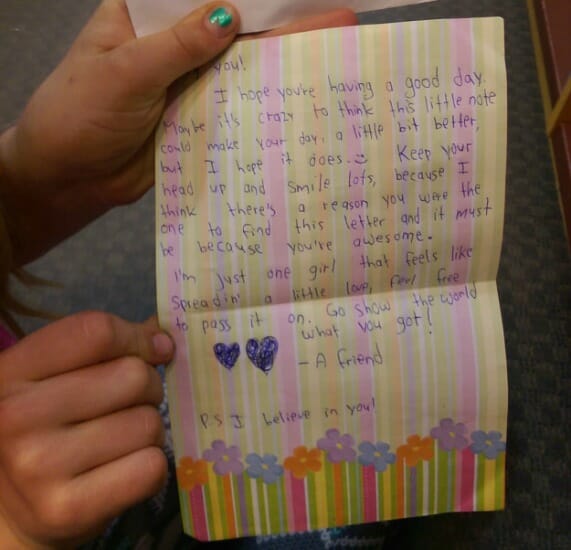 you!
I hope you're having a good day.
Maybe it's crazy to think this little note
could make your day, a little bit better,
but I hope it does. Keep your
head up and smile lots, because I
think there's a reason you were the
one to find this letter and it must
be because you're awesome.
I'm just one girl that feels like
Spreadin' a little love, feel free
to pass it on. Go show the world
what you got!
- A friend
P.S I believe in you!